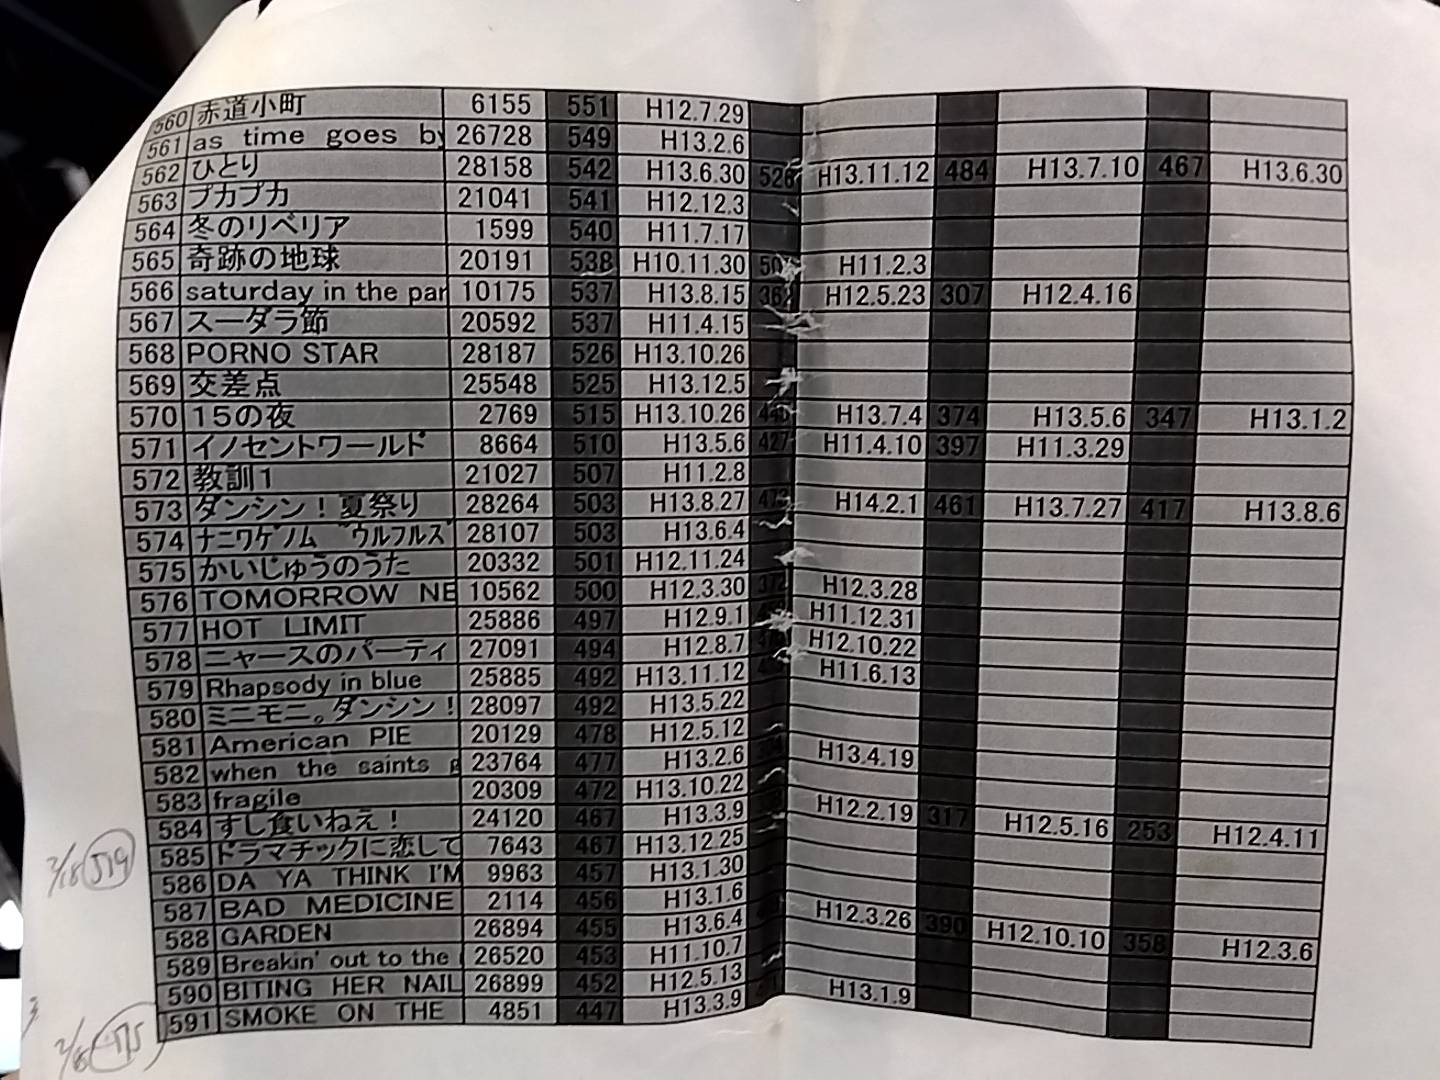 560 赤道小町 6155 551 H12.7.29
561 as time goes by 26728 549 H13.2.6
562 ひとり 28158 542 H13.6.30 526 H13.11.12 484 H13.7.10 467 H13.6.30
563 プカプカ 21041 541 H12.12.3
564 冬のリベリア 1599 540 H11.7.17
565 奇跡の地球 20191 538 H10.11.30 H11.2.3
566 saturday in the par 10175 537 H13.8.15 362 H12.5.23 307 H12.4.16
567 スーダラ節 20592 537 H11.4.15
568 PORNO STAR 28187 526 H13.10.26
569 交差点 25548 525 H13.12.5
570 15の夜 2769 515 H13.10.26 H13.7.4 374 H13.5.6 347 H13.1.2
571 イノセントワールド 8664 510 H13.5.6 427 H11.4.10 397 H11.3.29
572 教訓1 21027 507 H11.2.8
573 ダンシン！夏祭り 28264 503 H13.8.27 H14.2.1 461 H13.7.27 417 H13.8.6
574 ﾅﾆﾜｹﾞﾉﾑ ﾞｳﾙﾌﾙｽﾞ 28107 503 H13.6.4
575 かいじゅうのうた 20332 501 H12.11.24
576 TOMORROW NE 10562 500 H12.3.30 372 H12.3.28
577 HOT LIMIT 25886 497 H12.9.1 H11.12.31
578 ニャースのパーティ 27091 494 H12.8.7 H12.10.22
579 Rhapsody in blue 25885 492 H13.11.12 H11.6.13
580 ミニモニ。ダンシン！ 28097 492 H13.5.22
581 American PIE 20129 478 H12.5.12
582 when the saints g 23764 477 H13.2.6 H13.4.19
583 fragile 20309 472 H13.10.22
584 すし食いねえ！ 24120 467 H13.3.9 H12.2.19 317 H12.5.16 253 H12.4.11
585 ドラマチックに恋して 7643 467 H13.12.25
586 DA YA THINK I'M 9963 457 H13.1.30
587 BAD MEDICINE 2114 456 H13.1.6
588 GARDEN 26894 455 H13.6.4 H12.3.26 390 H12.10.10 358 H12.3.6
589 Breakin' out to the 26520 453 H11.10.7
590 BITING HER NAIL 26899 452 H12.5.13
591 SMOKE ON THE 4851 447 H13.3.9 H13.1.9